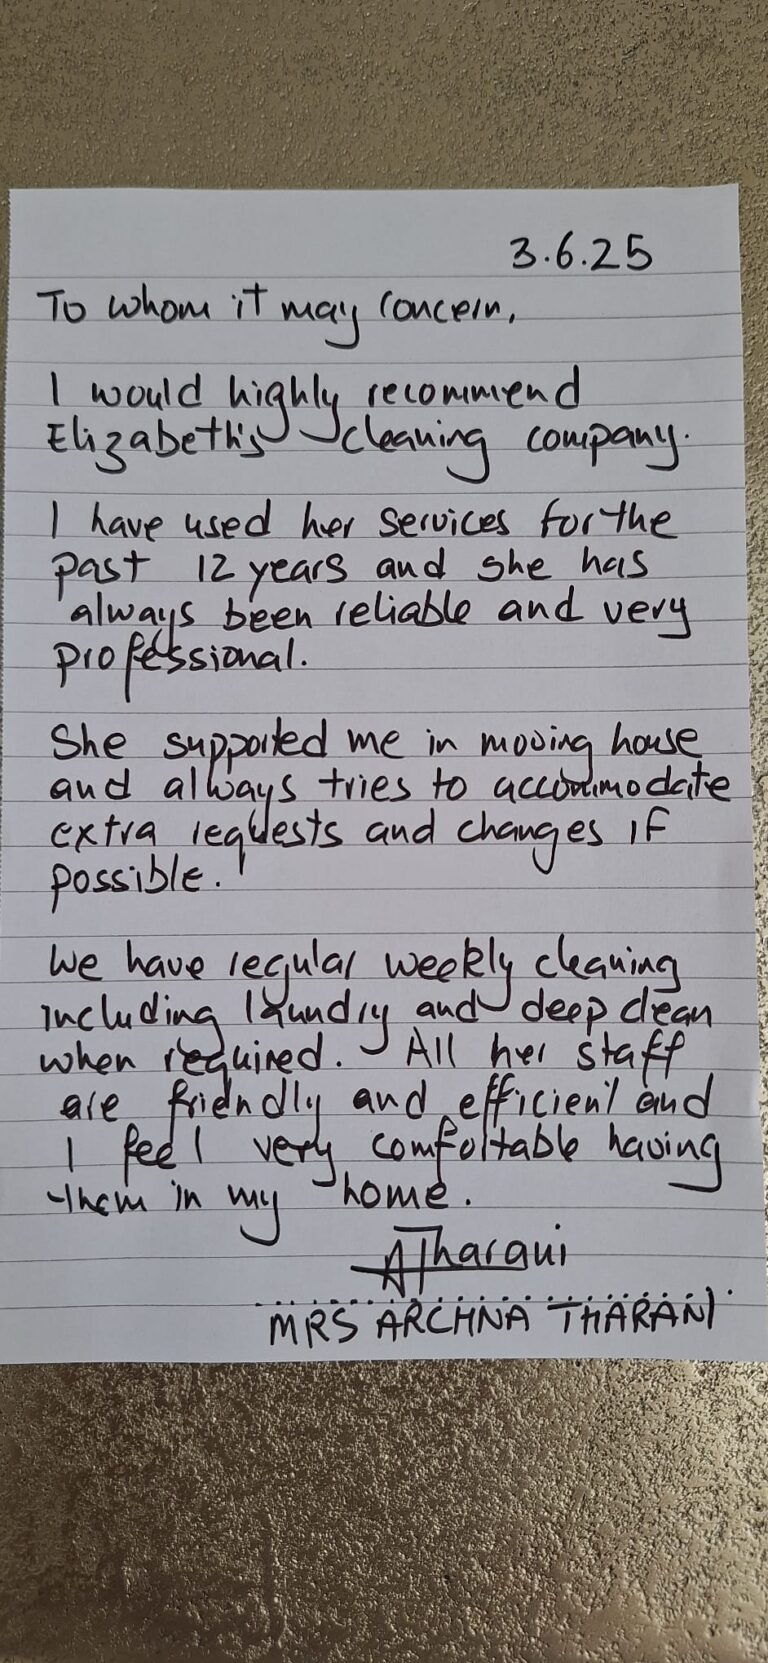 3.6.25
To whom it may concern,
I would highly recommend
Elizabeth's cleaning company.
I have used her services for the
past 12 years and she has
always been reliable and very
professional.
She supported me in moving house
and always tries to accommodate
extra requests and changes if
possible.
We have regular weekly cleaning
including laundry and deep clean
when required. All her staff
are friendly and efficient and
I feel very comfortable having
them in my home.
ATharani
MRS ARCHNA THARANI